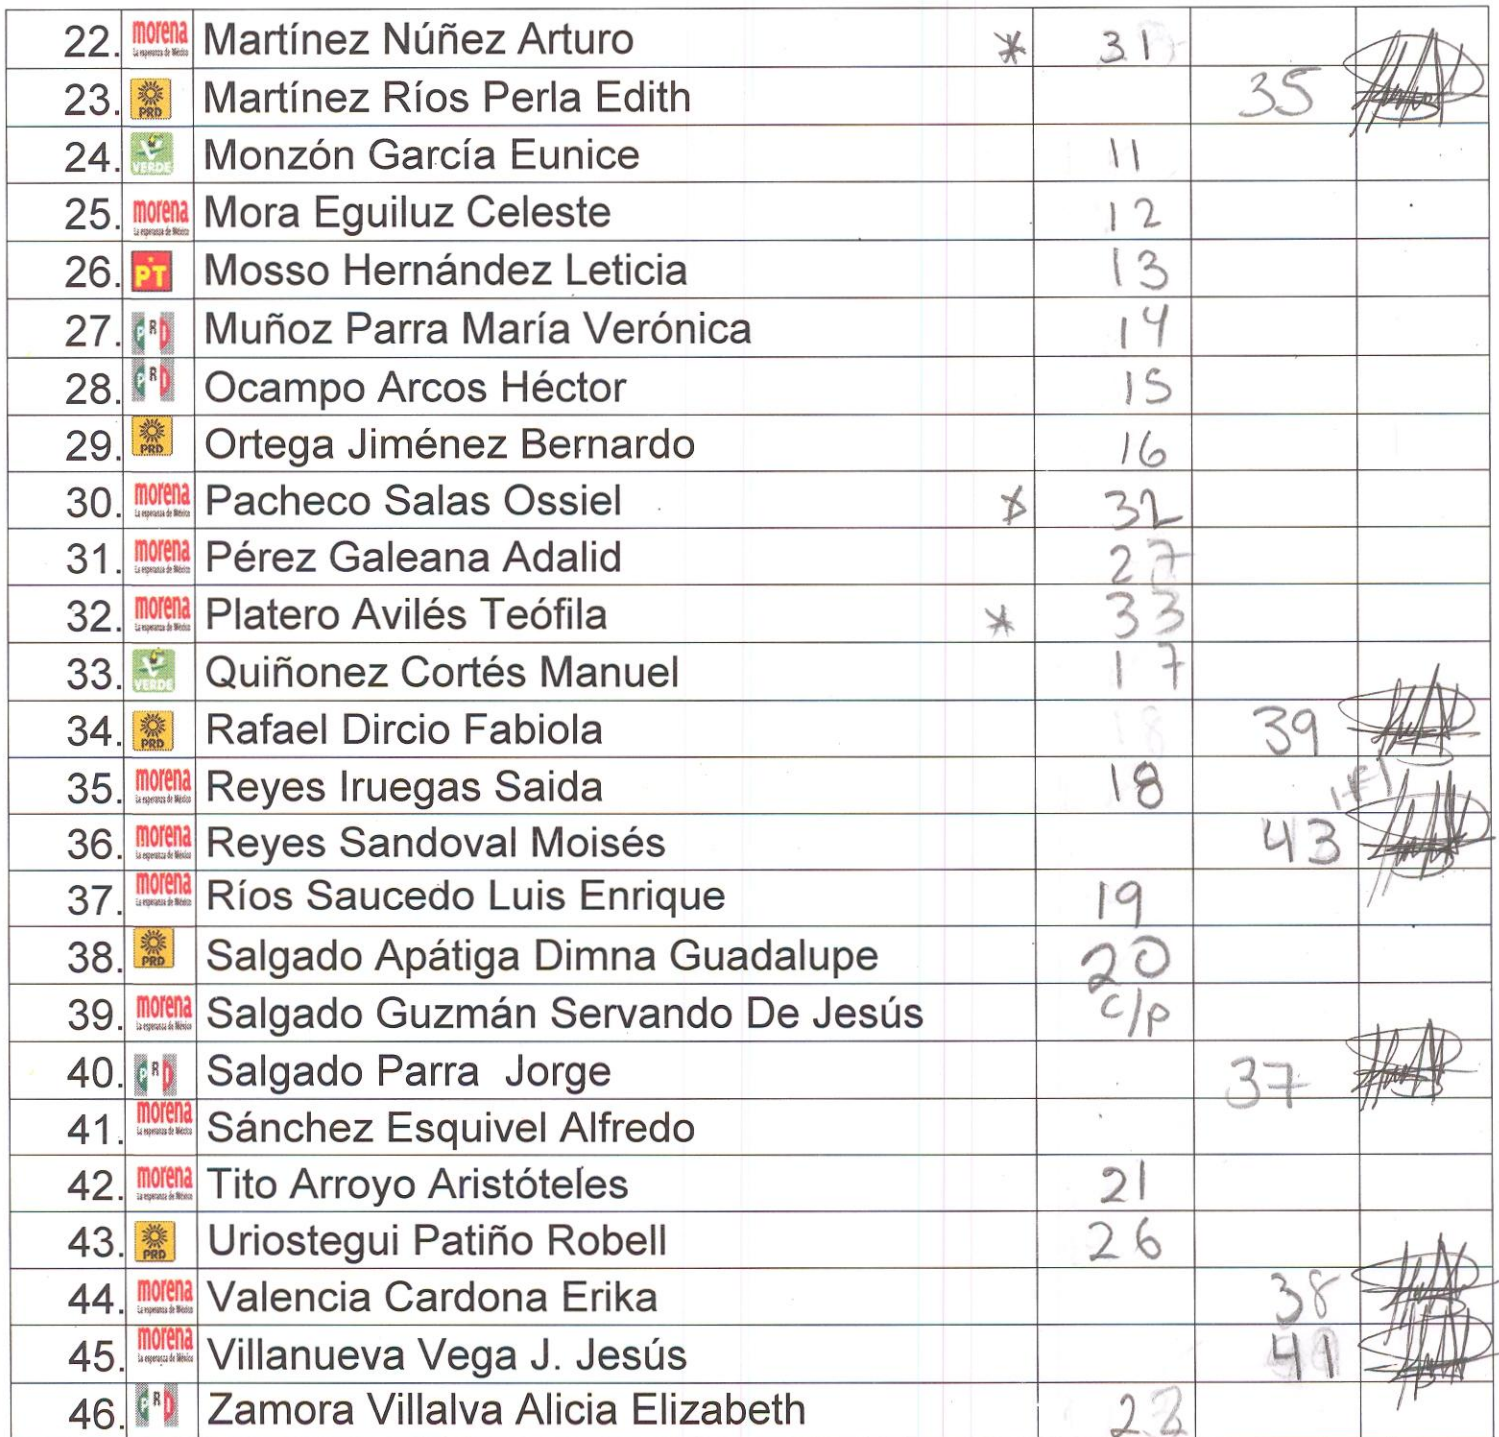 22. morena La esperanza de México Martínez Núñez Arturo * 31
23. PRD Martínez Ríos Perla Edith 35
24. VERDE Monzón García Eunice 11
25. morena La esperanza de México Mora Eguiluz Celeste 12
26. PT Mosso Hernández Leticia 13
27. PRI Muñoz Parra María Verónica 14
28. PRI Ocampo Arcos Héctor 15
29. PRD Ortega Jiménez Bernardo 16
30. morena La esperanza de México Pacheco Salas Ossiel * 32
31. morena La esperanza de México Pérez Galeana Adalid 27
32. morena La esperanza de México Platero Avilés Teófila * 33
33. VERDE Quiñonez Cortés Manuel 17
34. PRD Rafael Dircio Fabiola 18 39
35. morena La esperanza de México Reyes Iruegas Saida 18
36. morena La esperanza de México Reyes Sandoval Moisés 43
37. morena La esperanza de México Ríos Saucedo Luis Enrique 19
38. PRD Salgado Apátiga Dimna Guadalupe 20
39. morena La esperanza de México Salgado Guzmán Servando De Jesús c/p
40. PRI Salgado Parra Jorge 37
41. morena La esperanza de México Sánchez Esquivel Alfredo
42. morena La esperanza de México Tito Arroyo Aristóteles 21
43. PRD Uriostegui Patiño Robell 26
44. morena La esperanza de México Valencia Cardona Erika 38
45. morena La esperanza de México Villanueva Vega J. Jesús 41
46. PRI Zamora Villalva Alicia Elizabeth